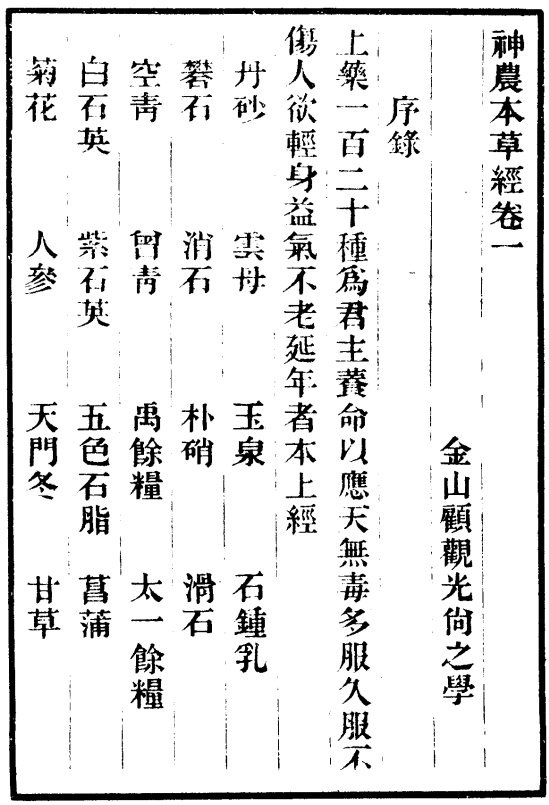 神農本草經卷一
金山顧觀光尙之學
序錄
上藥一百二十種爲君主養命以應天無毒多服久服不
傷人欲輕身益氣不老延年者本上經
丹砂 雲母 玉泉 石鍾乳
礬石 消石 朴硝 滑石
空靑 曾靑 禹餘糧 太一餘糧
白石英 紫石英 五色石脂 菖蒲
菊花 人參 天門冬 甘草